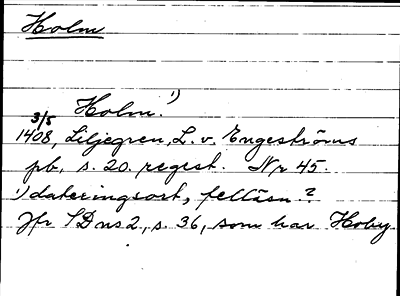 Holm
Holm. 1)
3/5
1408, Liljegren, L. v. Engeströms
pb, s. 20. regest. Nr 45.
1) dateringsort, felläsn?
Jfr SD ns 2, s. 36, som har Hoby